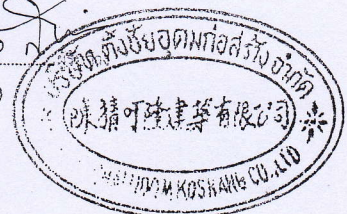 บริษัท ติ้งชัยอุดมก่อสร้าง จำกัด
建築有限公司
KOSRANG CO.,LTD